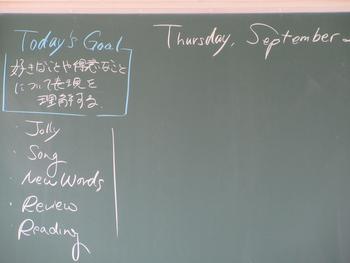 Today's Goal
Thursday, September
好きなことや得意なこと
について表現を
理解する.
・Jolly
・Song
・New Words
・Review
・Reading